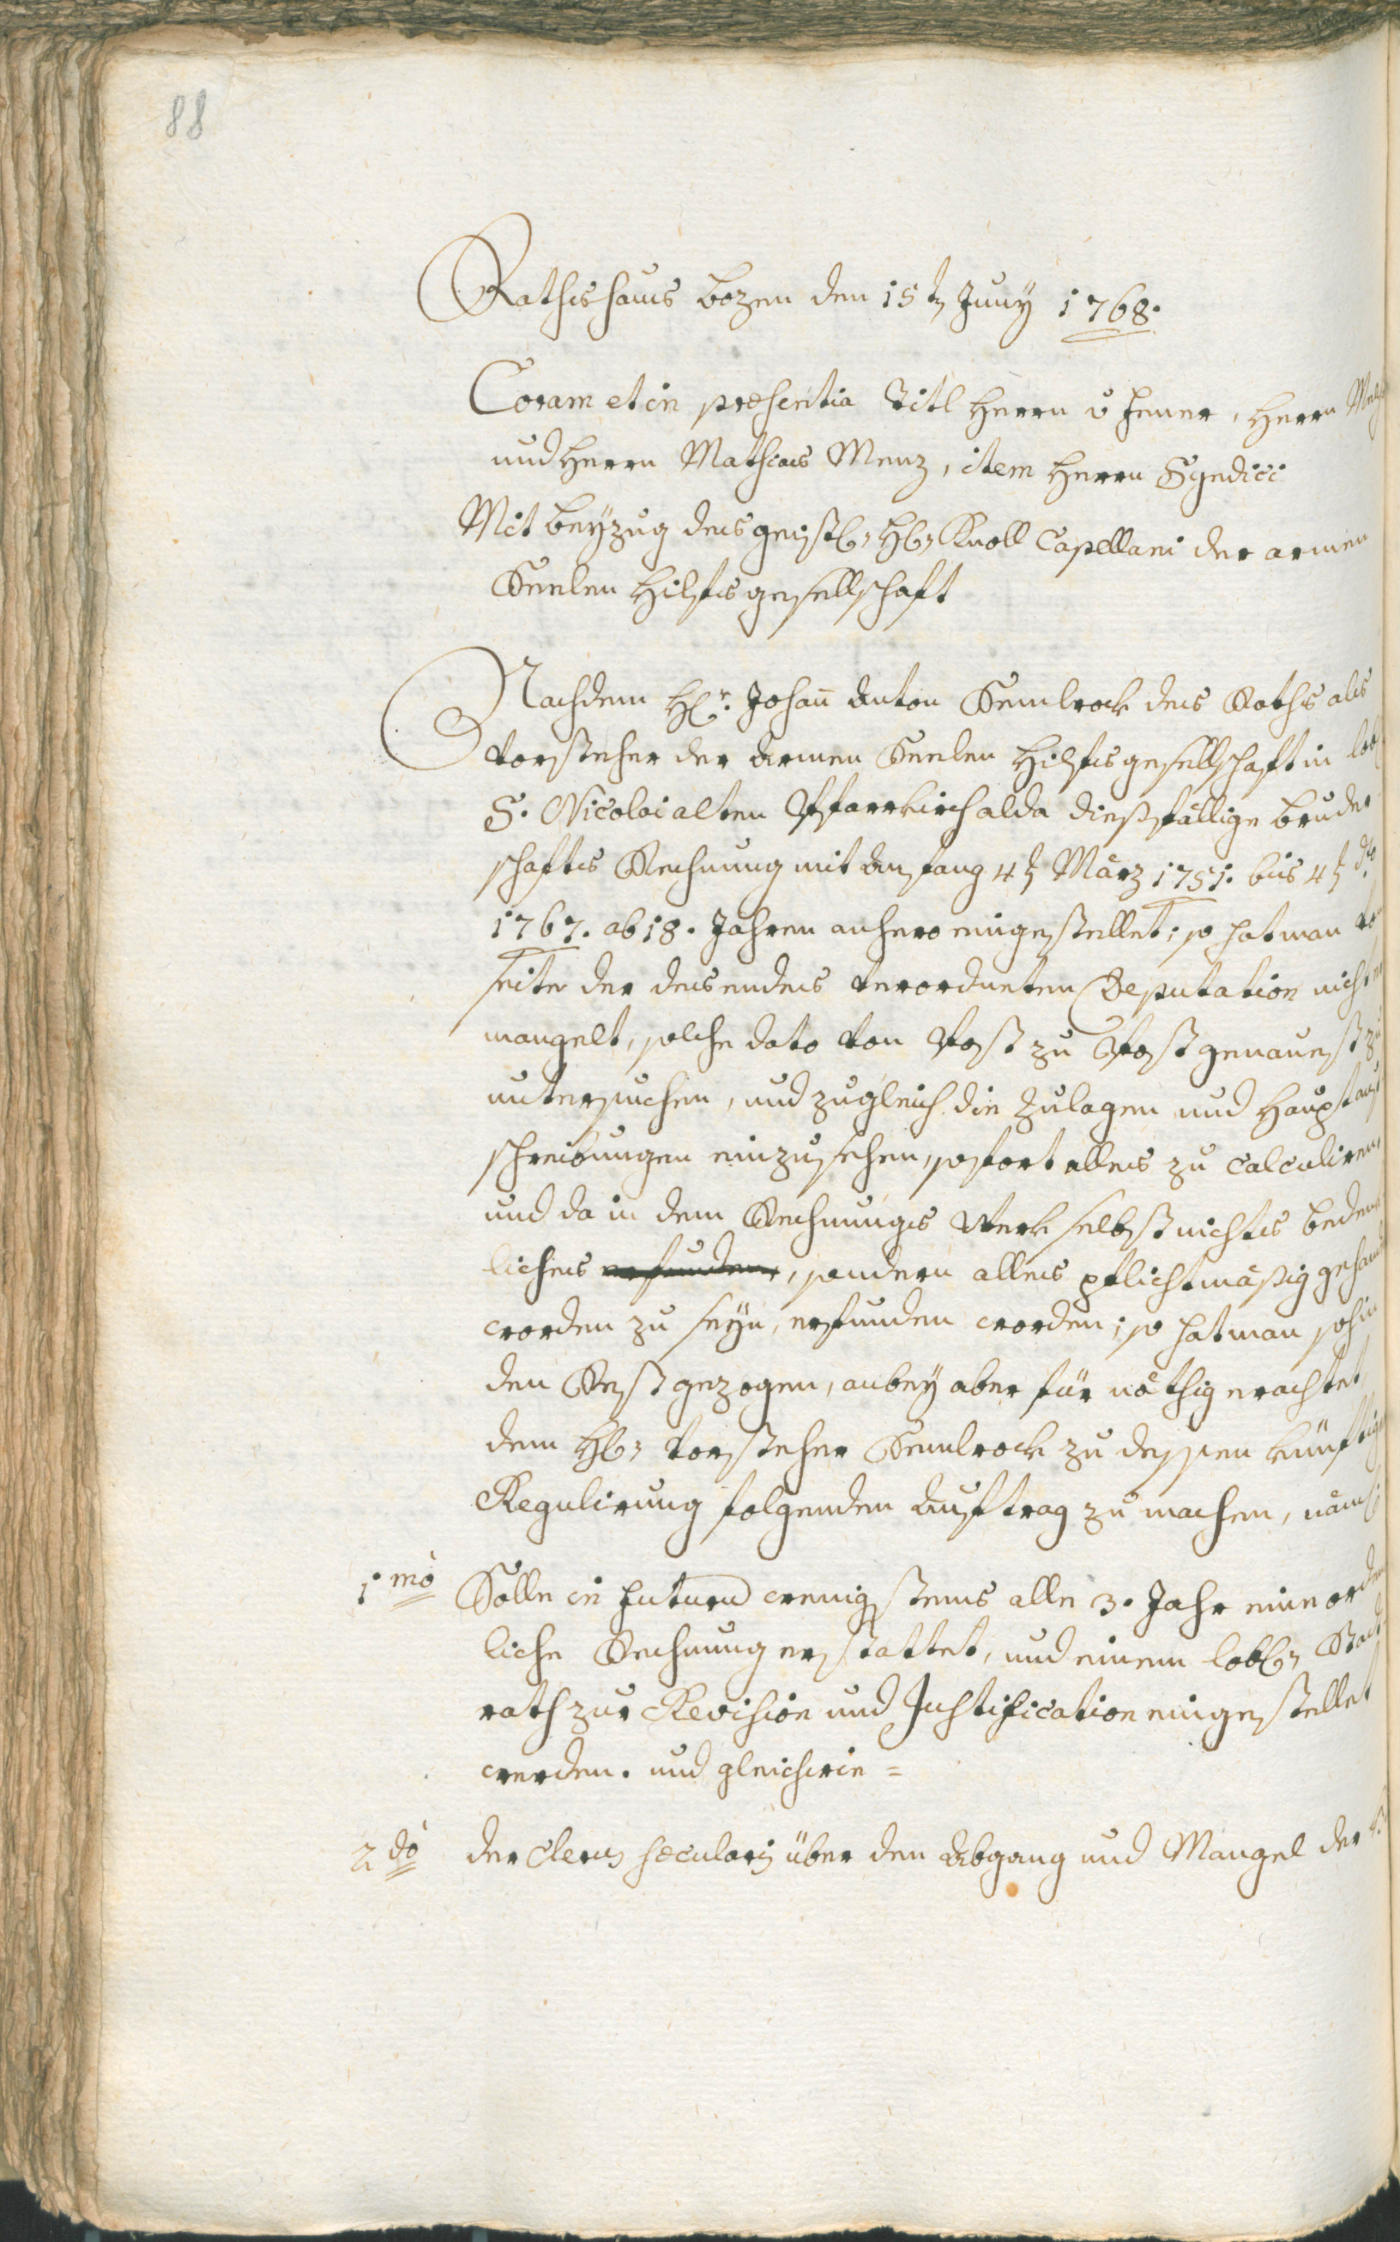 88
Rathshaus Bozen den 15t Juny 1768.
Coram et in præsentia Titl Herrn v Jenner, Herrn
und Herrn Mathias Menz, item Herrn Syndici
Mit beyzug des geistl: H: Knoll Capellani der armen
Seelen Hilfsgesellschaft
Nachdem Hr. Johan Anton Semlrock des Raths als
Vorsteher der Armen Seelen Hilfsgesellschaft in
S. Nicolai alten Pfarrkirch alda dießfällige Bruder
schafts Rechnung mit Anfang 4t März 1751. bis 4t do
1767. ab 18. Jahren anhero eingestellet; so hat man
seite der des endes verordneten Deputation nicht er
mangelt, solche dato von Post zu Post genauest zu
untersuchen, und zugleich die Zulagen und Haupt
schreibungen einzusehen, sofort alles zu calculiren,
und da in dem Rechnungs Werk selbst nichts beden
liches erfunden, sondern alles pflichtmäßig gehand
worden zu seyn, erfunden worden; so hat man sohin
den Rest gezogen, anbey aber für nöthig erachtet
dem H: Vorsteher Semlrock zu dessen künftig
Regulirung folgenden Auftrag zu machen, näml
1mo Solle in futurum wenigstens alle 3. Jahr eine orden
liche Rechnung erstattet, und einem lobl: Stadt
rath zur Revision und Justification eingestellet
werden. und gleichwie =
2do der Clerus sæcularis über den Abgang und Mangel der